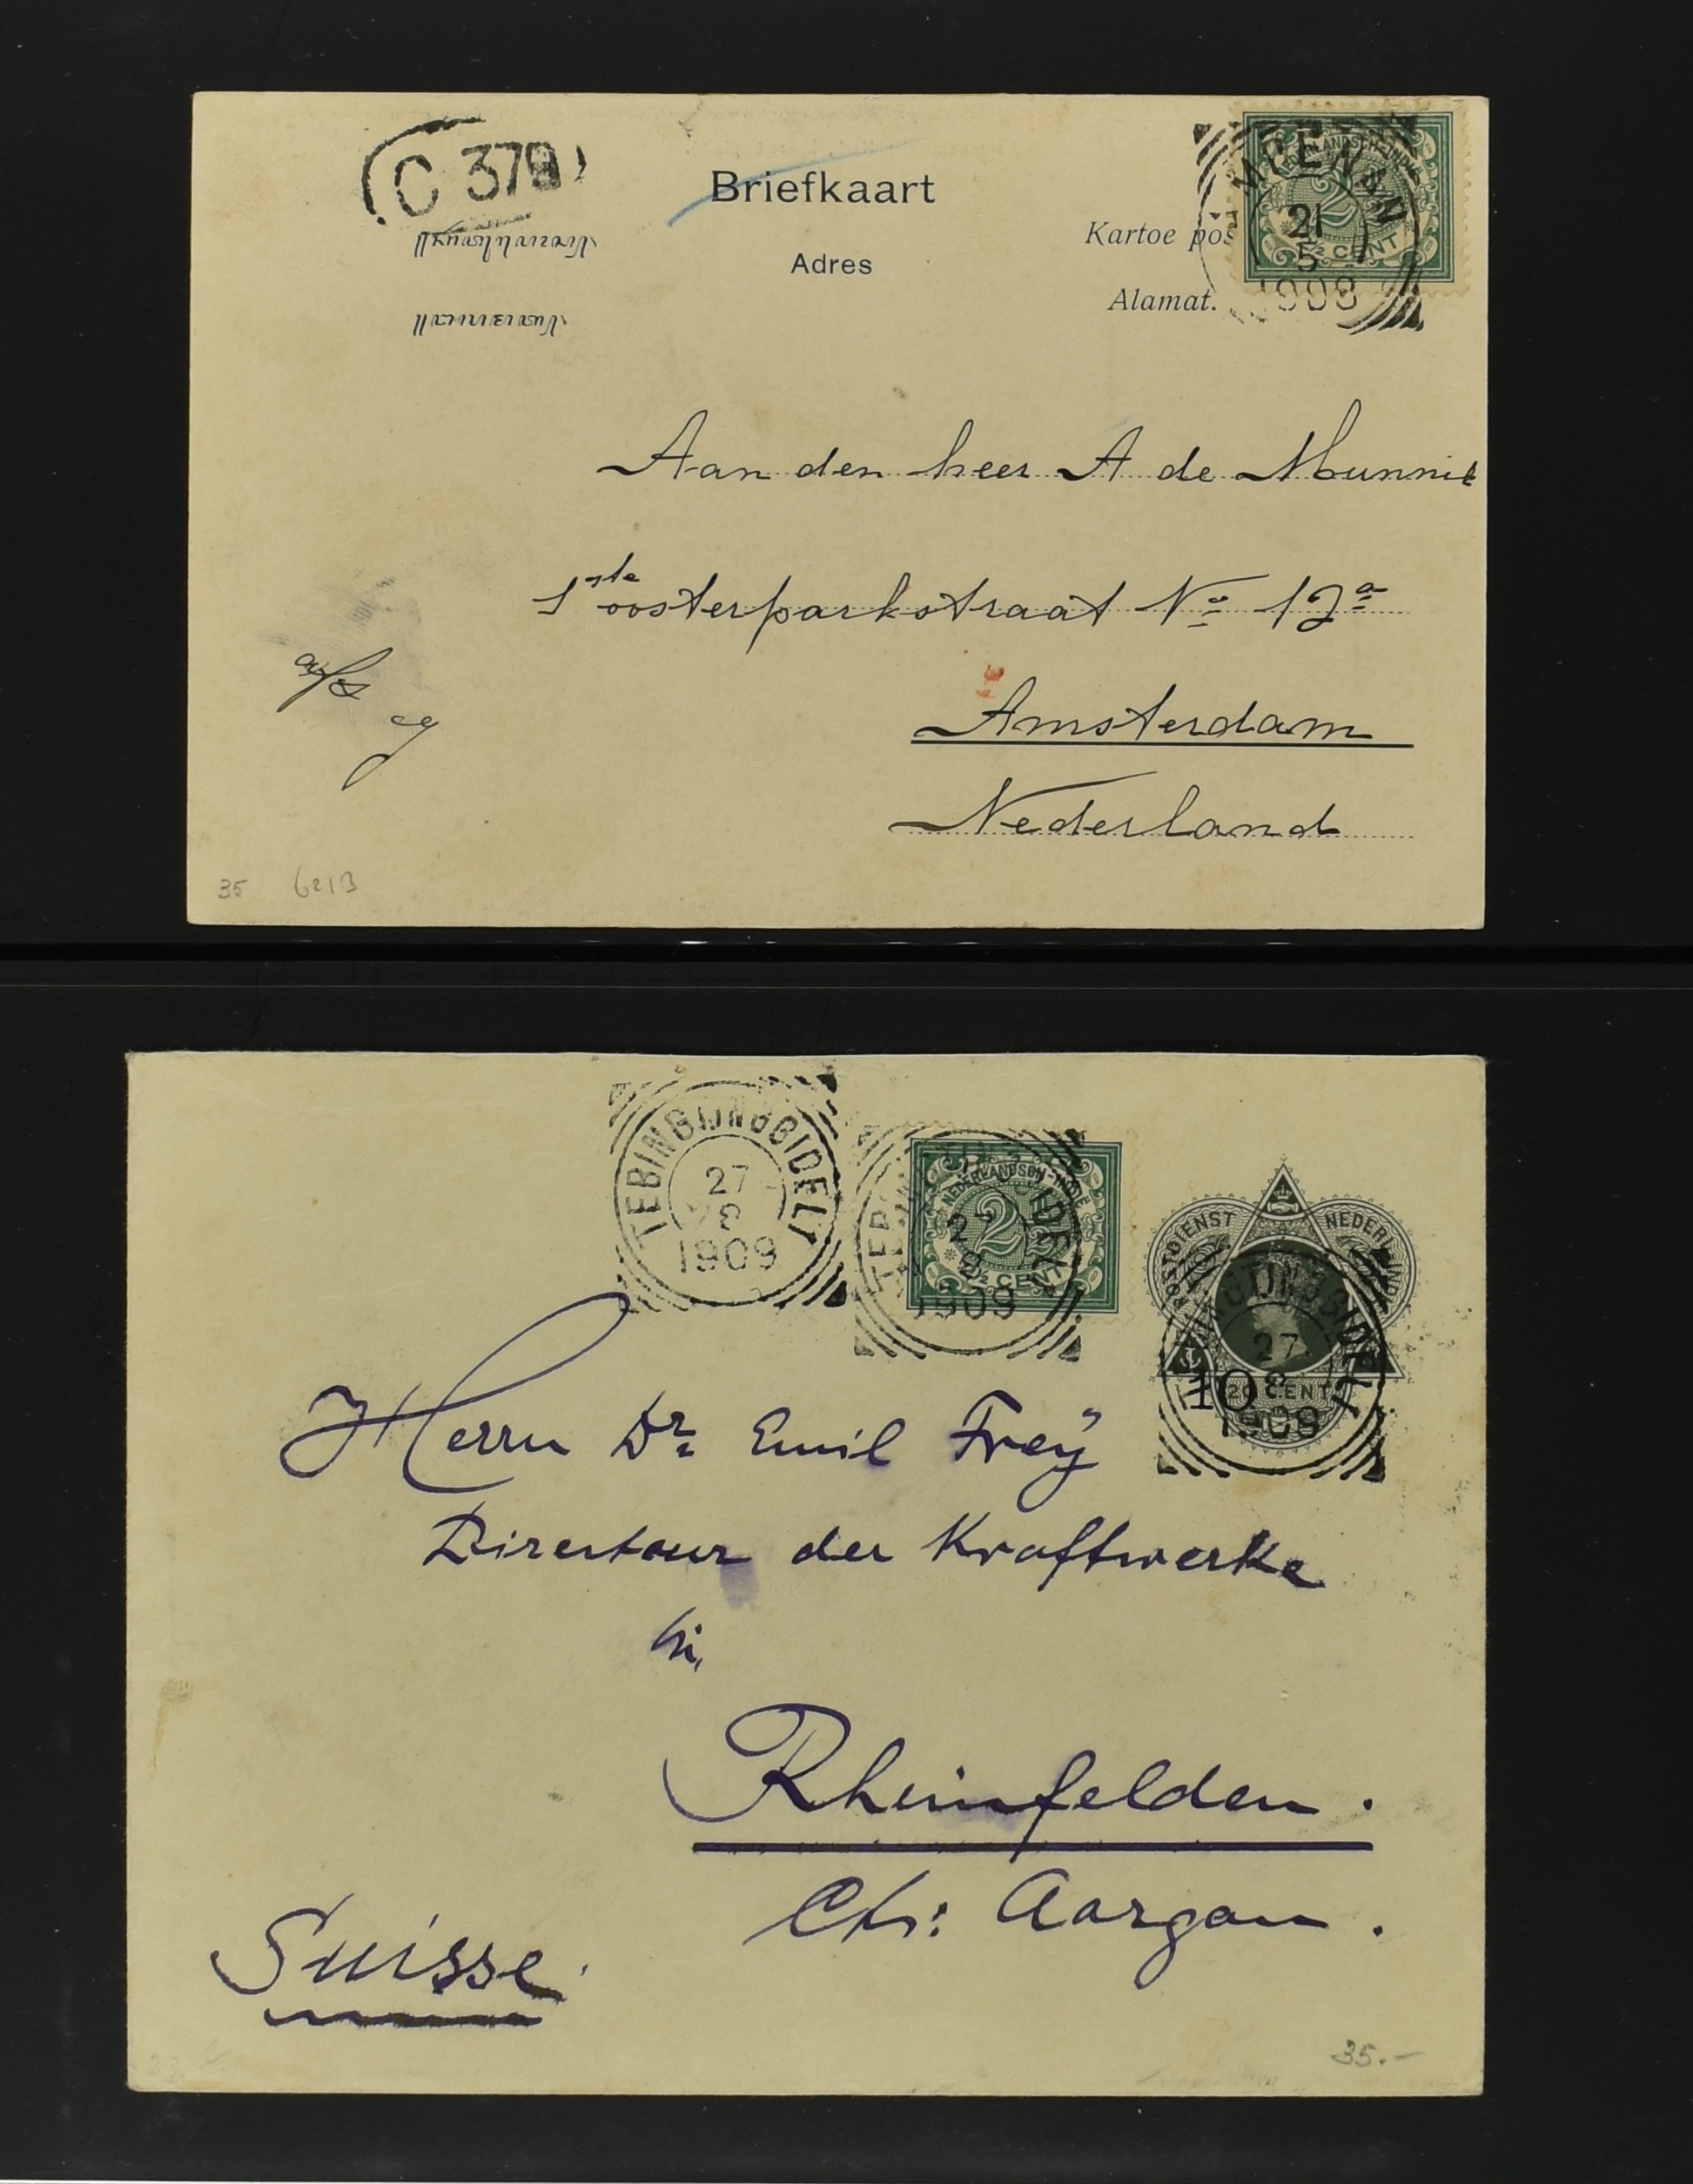 C 379
Briefkaart
Adres
Kartoe pos
Alamat.
NEDERLANDSCH-INDIË
2½ CENT
21
5
1908
Aan den heer A de Munnik
1ste oosterparkstraat No 12a
Amsterdam
Nederland
35 6213
TEBINGTINGGIDELI
27
8
1909
NEDERLANDSCH-INDIË
2½ CENT
1909
POSTDIENST NEDERL. INDIË
27
8
10
20 CENT
1909
Herrn Dr. Emil Frey
Directeur der Kraftwerke
in
Rheinfelden.
Ct: Aargau.
Suisse
35.-